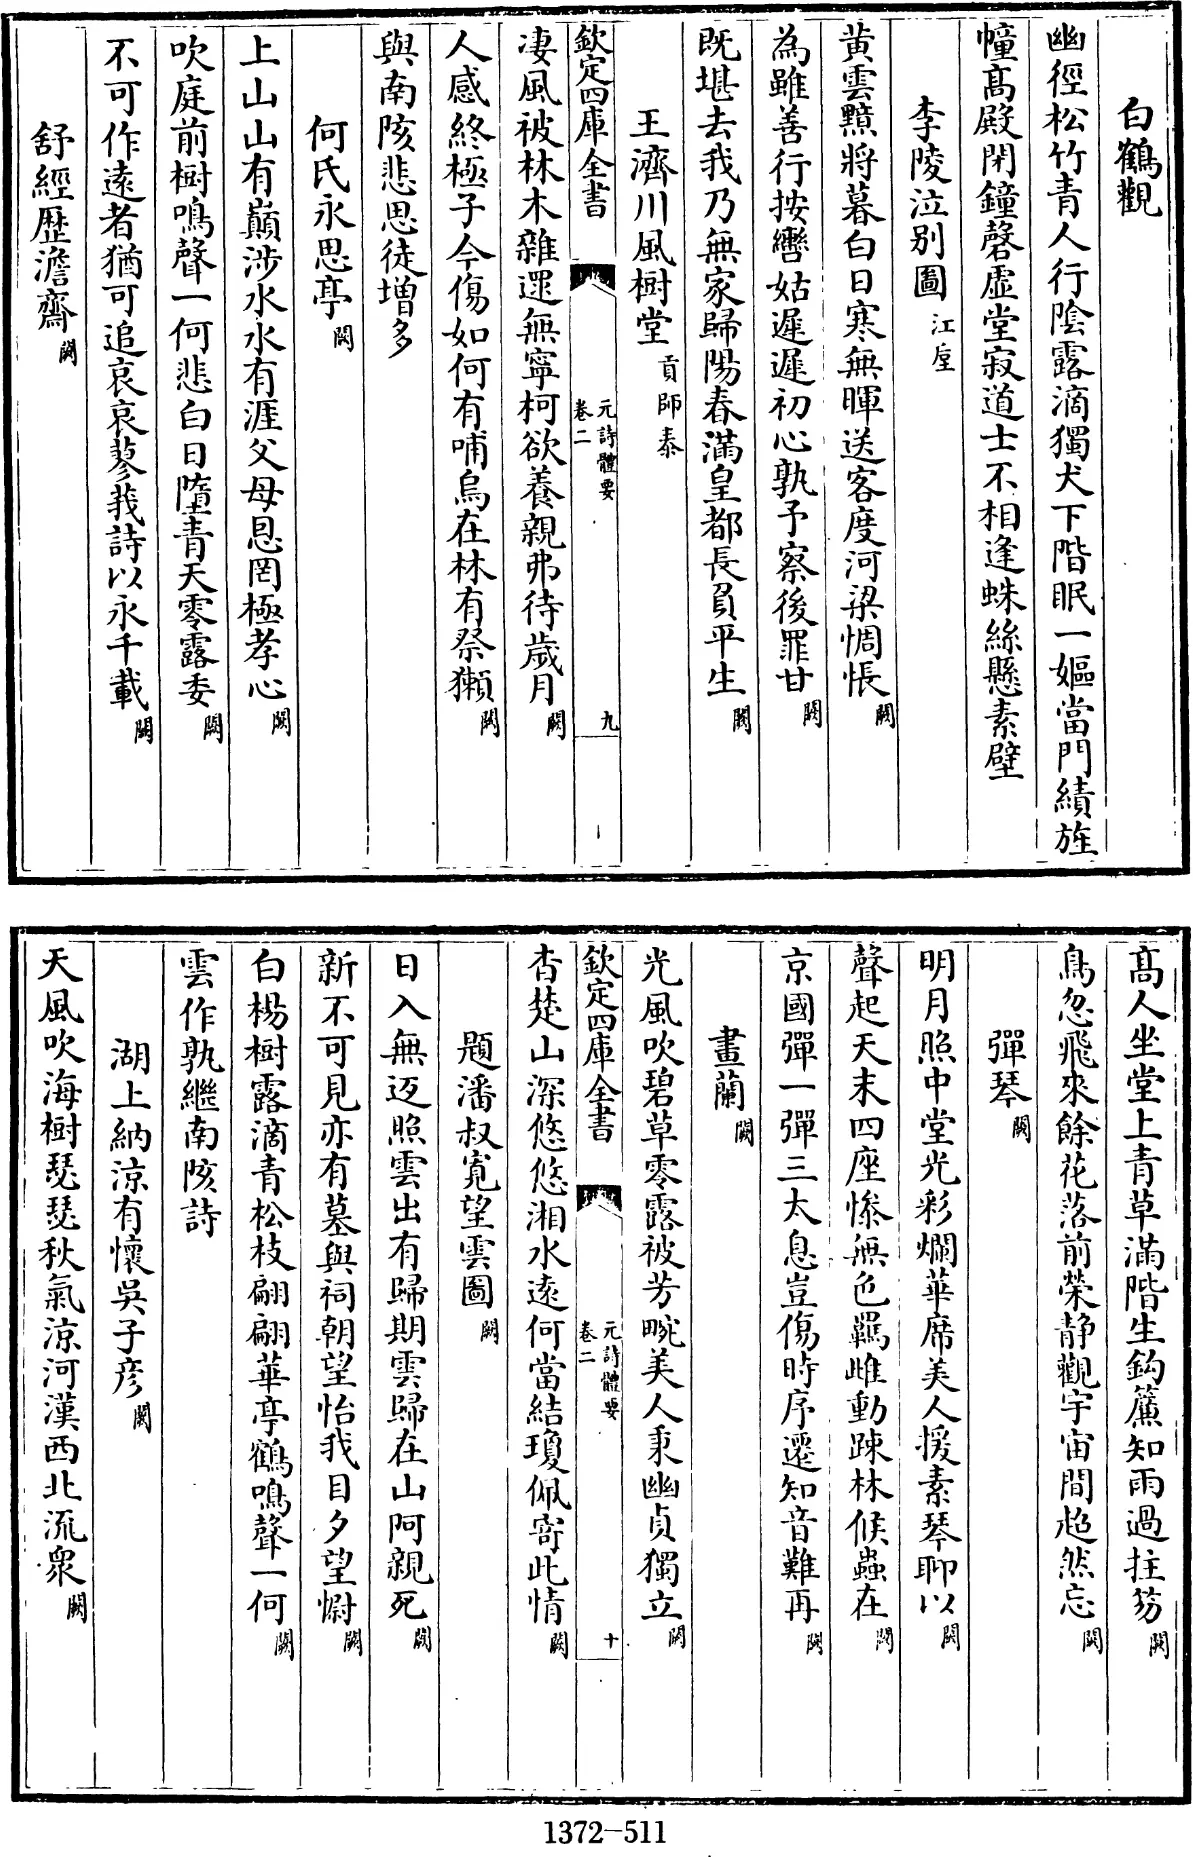 白鶴觀
幽徑松竹青人行陰露滴獨犬下階眠一嫗當門績旌
幢髙殿閉鐘磬虛堂寂道士不相逢蛛絲懸素壁
李陵泣别圖 江垕
黄雲黯將暮白日寒無暉送客度河梁惆悵闕
為雖善行按轡姑遲遲初心孰予察後罪甘闕
既堪去我乃無家歸陽春滿皇都長負平生闕
王濟川風樹堂 貢師泰
欽定四庫全書
元詩體要
卷二
九
凄風被林木雜遝無寧柯欲養親弗待歲月闕
人感終極子今傷如何有哺烏在林有祭獺闕
與南陔悲思徒増多
何氏永思亭闕
上山山有巔涉水水有涯父母恩罔極孝心闕
吹庭前樹鳴聲一何悲白日墮青天零露委闕
不可作逺者猶可追哀哀蓼莪詩以永千載闕
舒經歴澹齋闕
髙人坐堂上青草滿階生鈎簾知雨過拄笏闕
鳥忽飛來餘花落前榮静觀宇宙間超然忘闕
彈琴闕
明月照中堂光彩爛華席美人援素琴聊以闕
聲起天末四座慘無色羈雌動踈林候蟲在闕
京國彈一彈三太息豈傷時序遷知音難再闕
畫蘭闕
光風吹碧草零露被芳畹美人秉幽貞獨立闕
欽定四庫全書
元詩體要
卷二
十
杳楚山深悠悠湘水逺何當結瓊佩寄此情闕
題潘叔寛望雲圖闕
日入無返照雲出有歸期雲歸在山阿親死闕
新不可見亦有墓與祠朝望怡我目夕望慰闕
白楊樹露滴青松枝翩翩華亭鶴鳴聲一何闕
雲作孰繼南陔詩
湖上納涼有懷吳子彦闕
天風吹海樹瑟瑟秋氣涼河漢西北流衆闕
1372-511